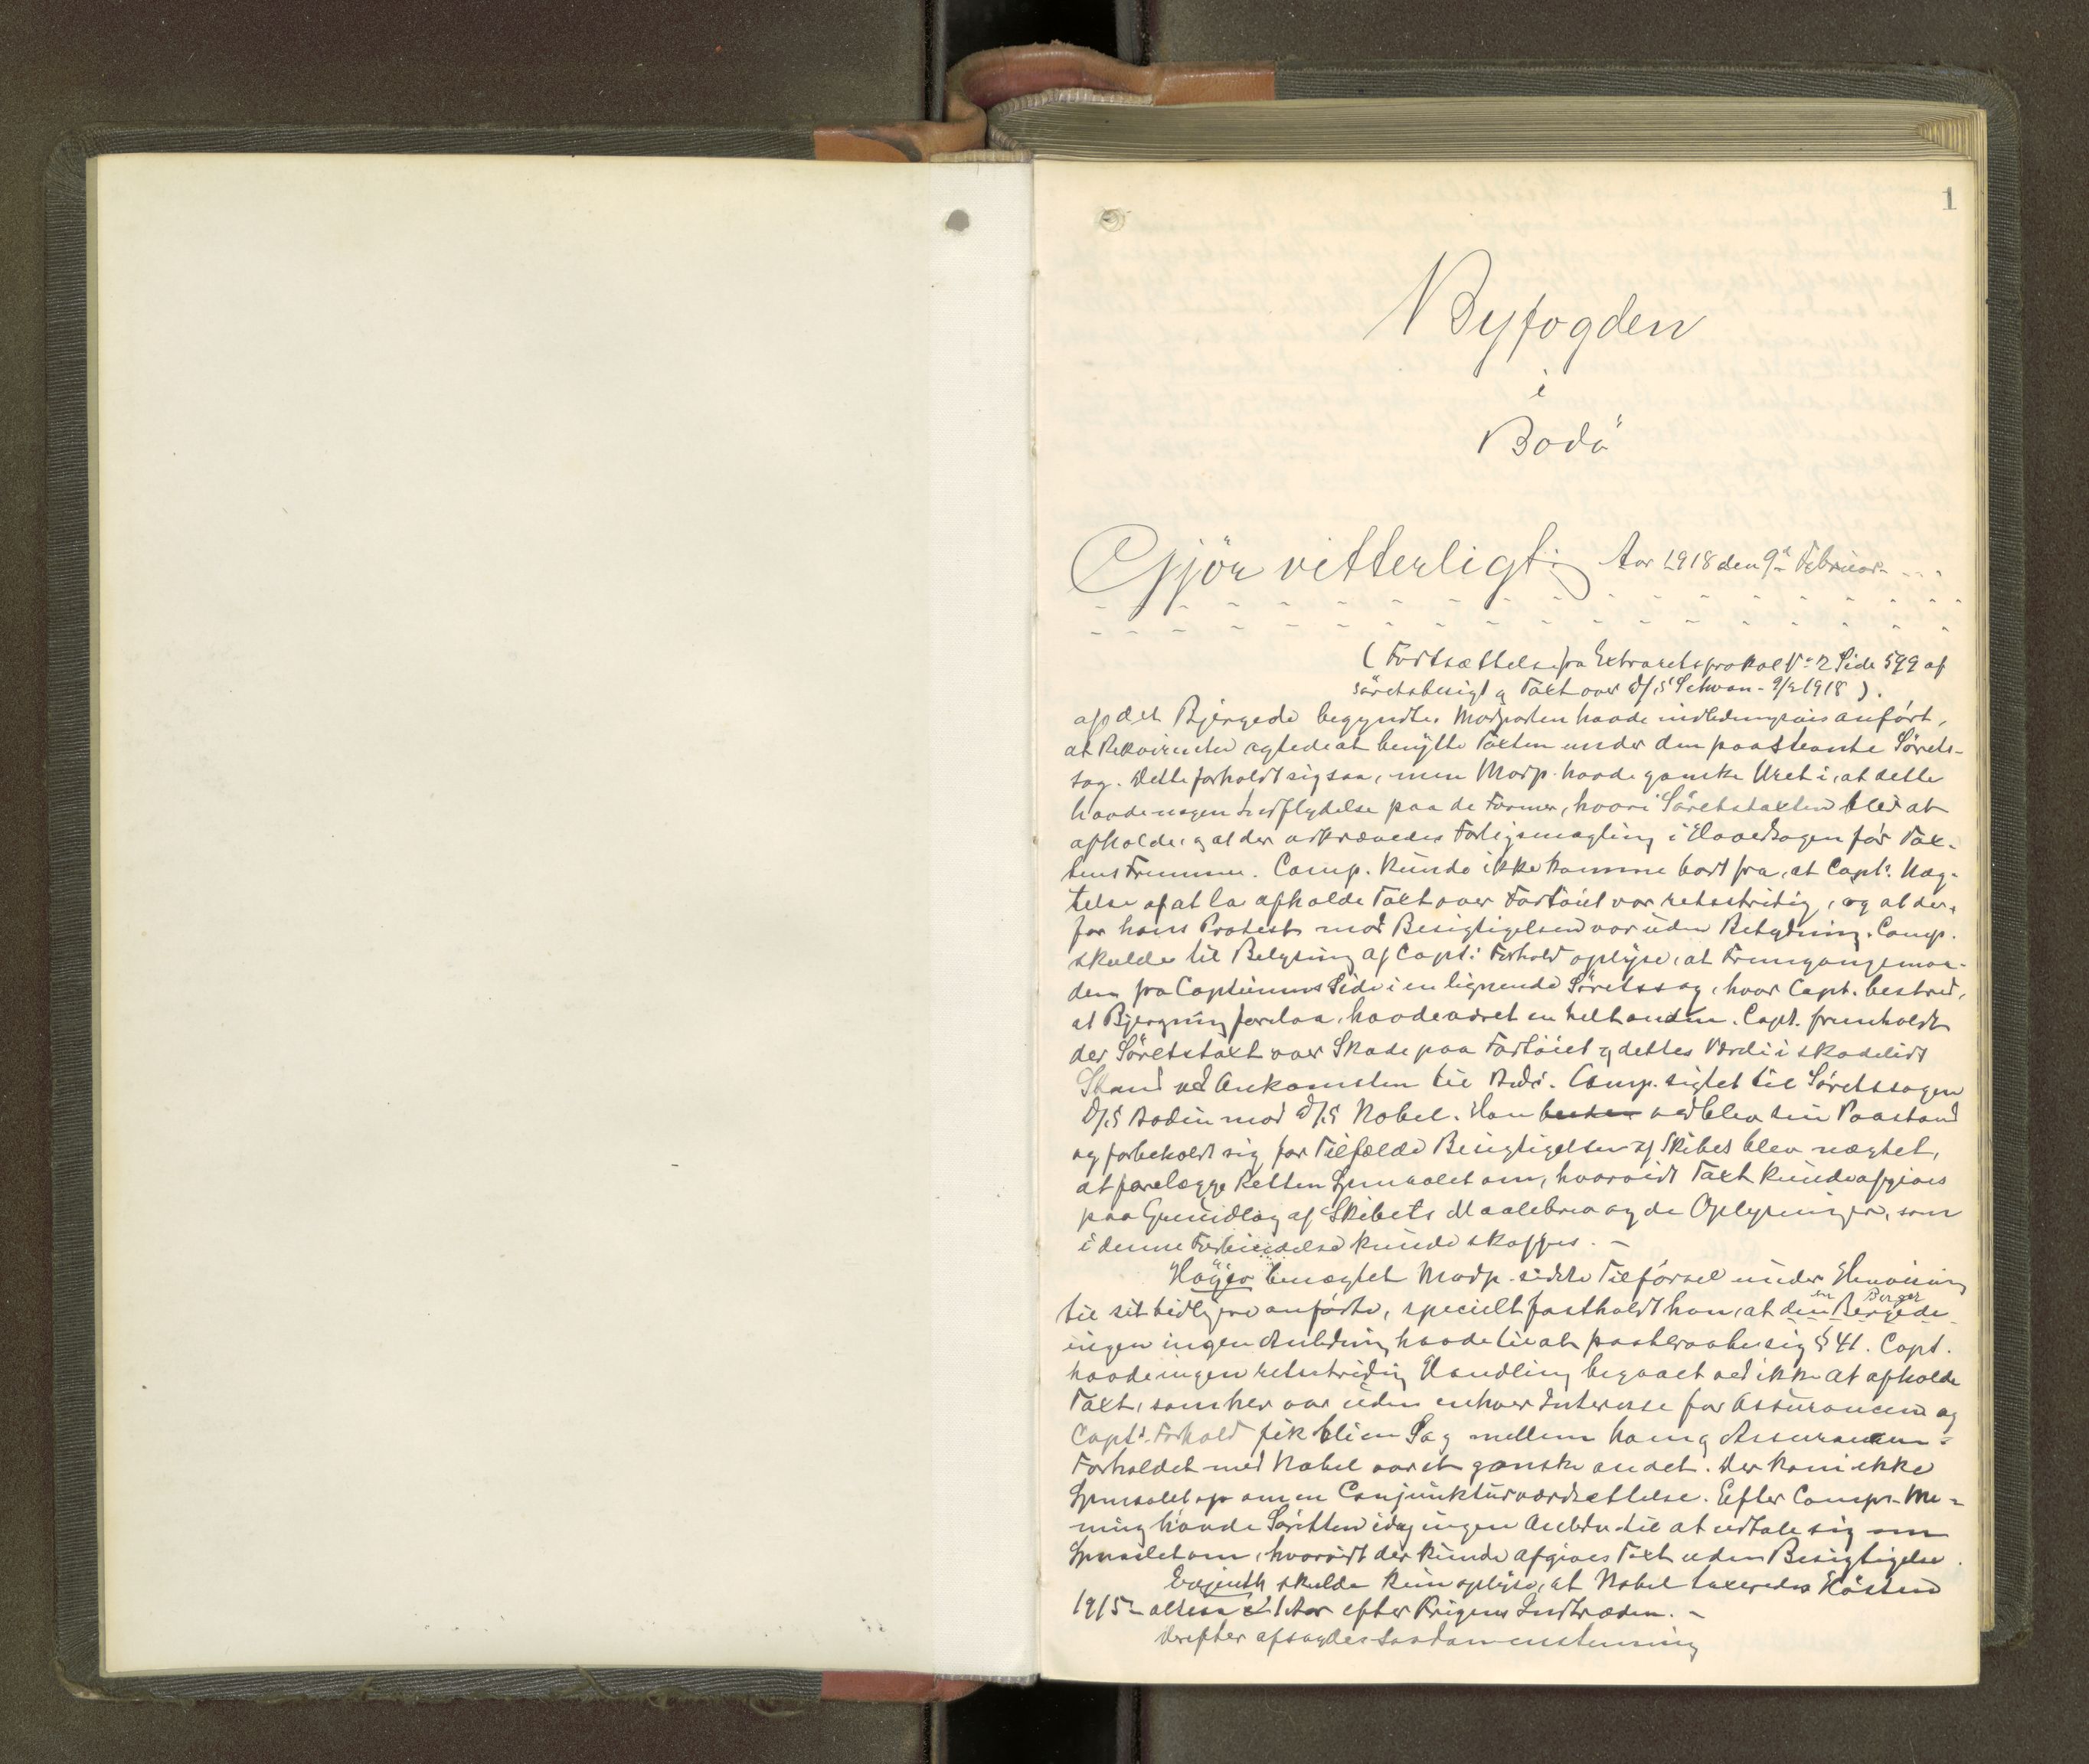 1
Byfogden
i
Bodö
Gjör vitterligt: Aar 1918 den 9de Februar
(Fortsættelse fra Extraretsprotokol No 2 Side 599 af
Söretsbesigt og Taxt over D/S "Schwan" - 9/2 1918).
af det Bjergede begyndte. Modparten havde indledningsvis anfört,
at Rekvirenten agtede at benytte Taxten under den paastevnte Sörets-
sag. Dette forholdt sig saa, men Modp. havde ganske Uret i, at dette
havde nogen Indflydelse paa de Former, hvori Söretstaxten blev at
afholde, og at der udkrævedes Forligsmægling i Hovedsagen för Tax-
tens Fremme. Comp. kunde ikke komme bort fra, at Capt.s Næg-
telse af at la afholde Taxt over Fartöiet var retsstridig, og at der-
for hans Protest mod Besigtigelsen var uden Betydning. Comp.
skulde til Belysning af Capt.s Forhold oplyse, at Fremgangsmaa-
den fra Capteinens Side i en lignende Söretssag, hvor Capt. bestred,
at Bjergning forelaa, havde været en helt anden. Capt. fremholdt
der Söretstaxt over Skade paa Fartöiet og dettes Værdi i skadelidt
Stand ved Ankomsten til Bodö. Comp. sigtet til Söretssagen
D/S Bodin mod D/S Nobel. Han vedblev sin Paastand
og forbeholdt sig for Tilfælde Besigtigelsen af Skibet blev nægtet,
at forelægge Retten Spmaalet om, hvorvidt Taxt kunde afgives
paa Grundlag af Skibets Maalebrev og de Oplysninger, som
i denne Forbindelse kunde skaffes. -
Höyer benægtet Modp. sidste Tilförsel under Henvisning
til sit tidligere anförte, specielt fastholdt han, at den Bergede
en Berger
ingen Anledning havde til at paaberaabe sig § 41. Capt.
havde ingen retsstridig Handling begaaet ved ikke at afholde
Taxt, som her var uden enhver Interesse for Assurancen og
Capt.s Forhold fik bli en Sag mellem ham og Assurancen -
Forholdet med Nobel var et ganske andet. Der kom ikke
Spmaalet op om en Conjunkturværdsættelse. Efter Comps. Me-
ning havde Söretten idag ingen Anledn. til at udtale sig om
Spmaalet om, hvorvidt der kunde afgives Taxt uden Besigtigelse.
skulde kun oplyse, at Nobel taxeredes Hösten
1915 - altsaa 1 Aar efter Krigens Indtræden. -
Derefter afsagdes saadan enstemmig